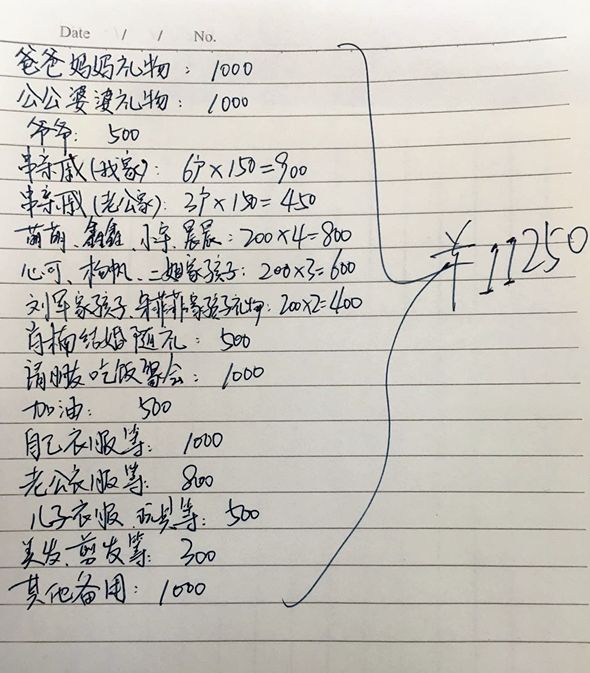 Date / / No.
爸爸妈妈礼物：1000
公公婆婆礼物：1000
爷爷：500
串亲戚(我家)：6个×150=900
串亲戚(老公家)：3个×150=450
萌萌、鑫鑫、小宇、晨晨：200×4=800
心可、杨帆、二姐家孩子：200×3=600
刘军家孩子、朱菲菲家孩子礼物：200×2=400
肖楠结婚随礼：500
请朋友吃饭聚会：1000
加油：500
自己衣服等：1000
老公衣服等：800
儿子衣服、玩具等：500
美发、剪发等：300
其他备用：1000
¥11250